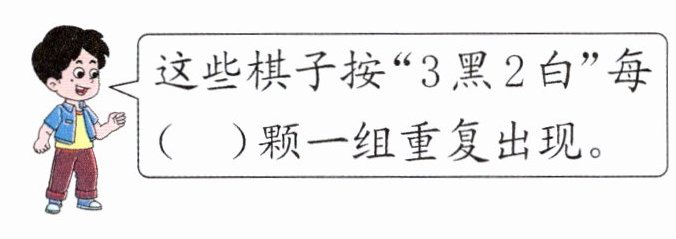 这些棋子按“3黑2白”每
（ ）颗一组重复出现。